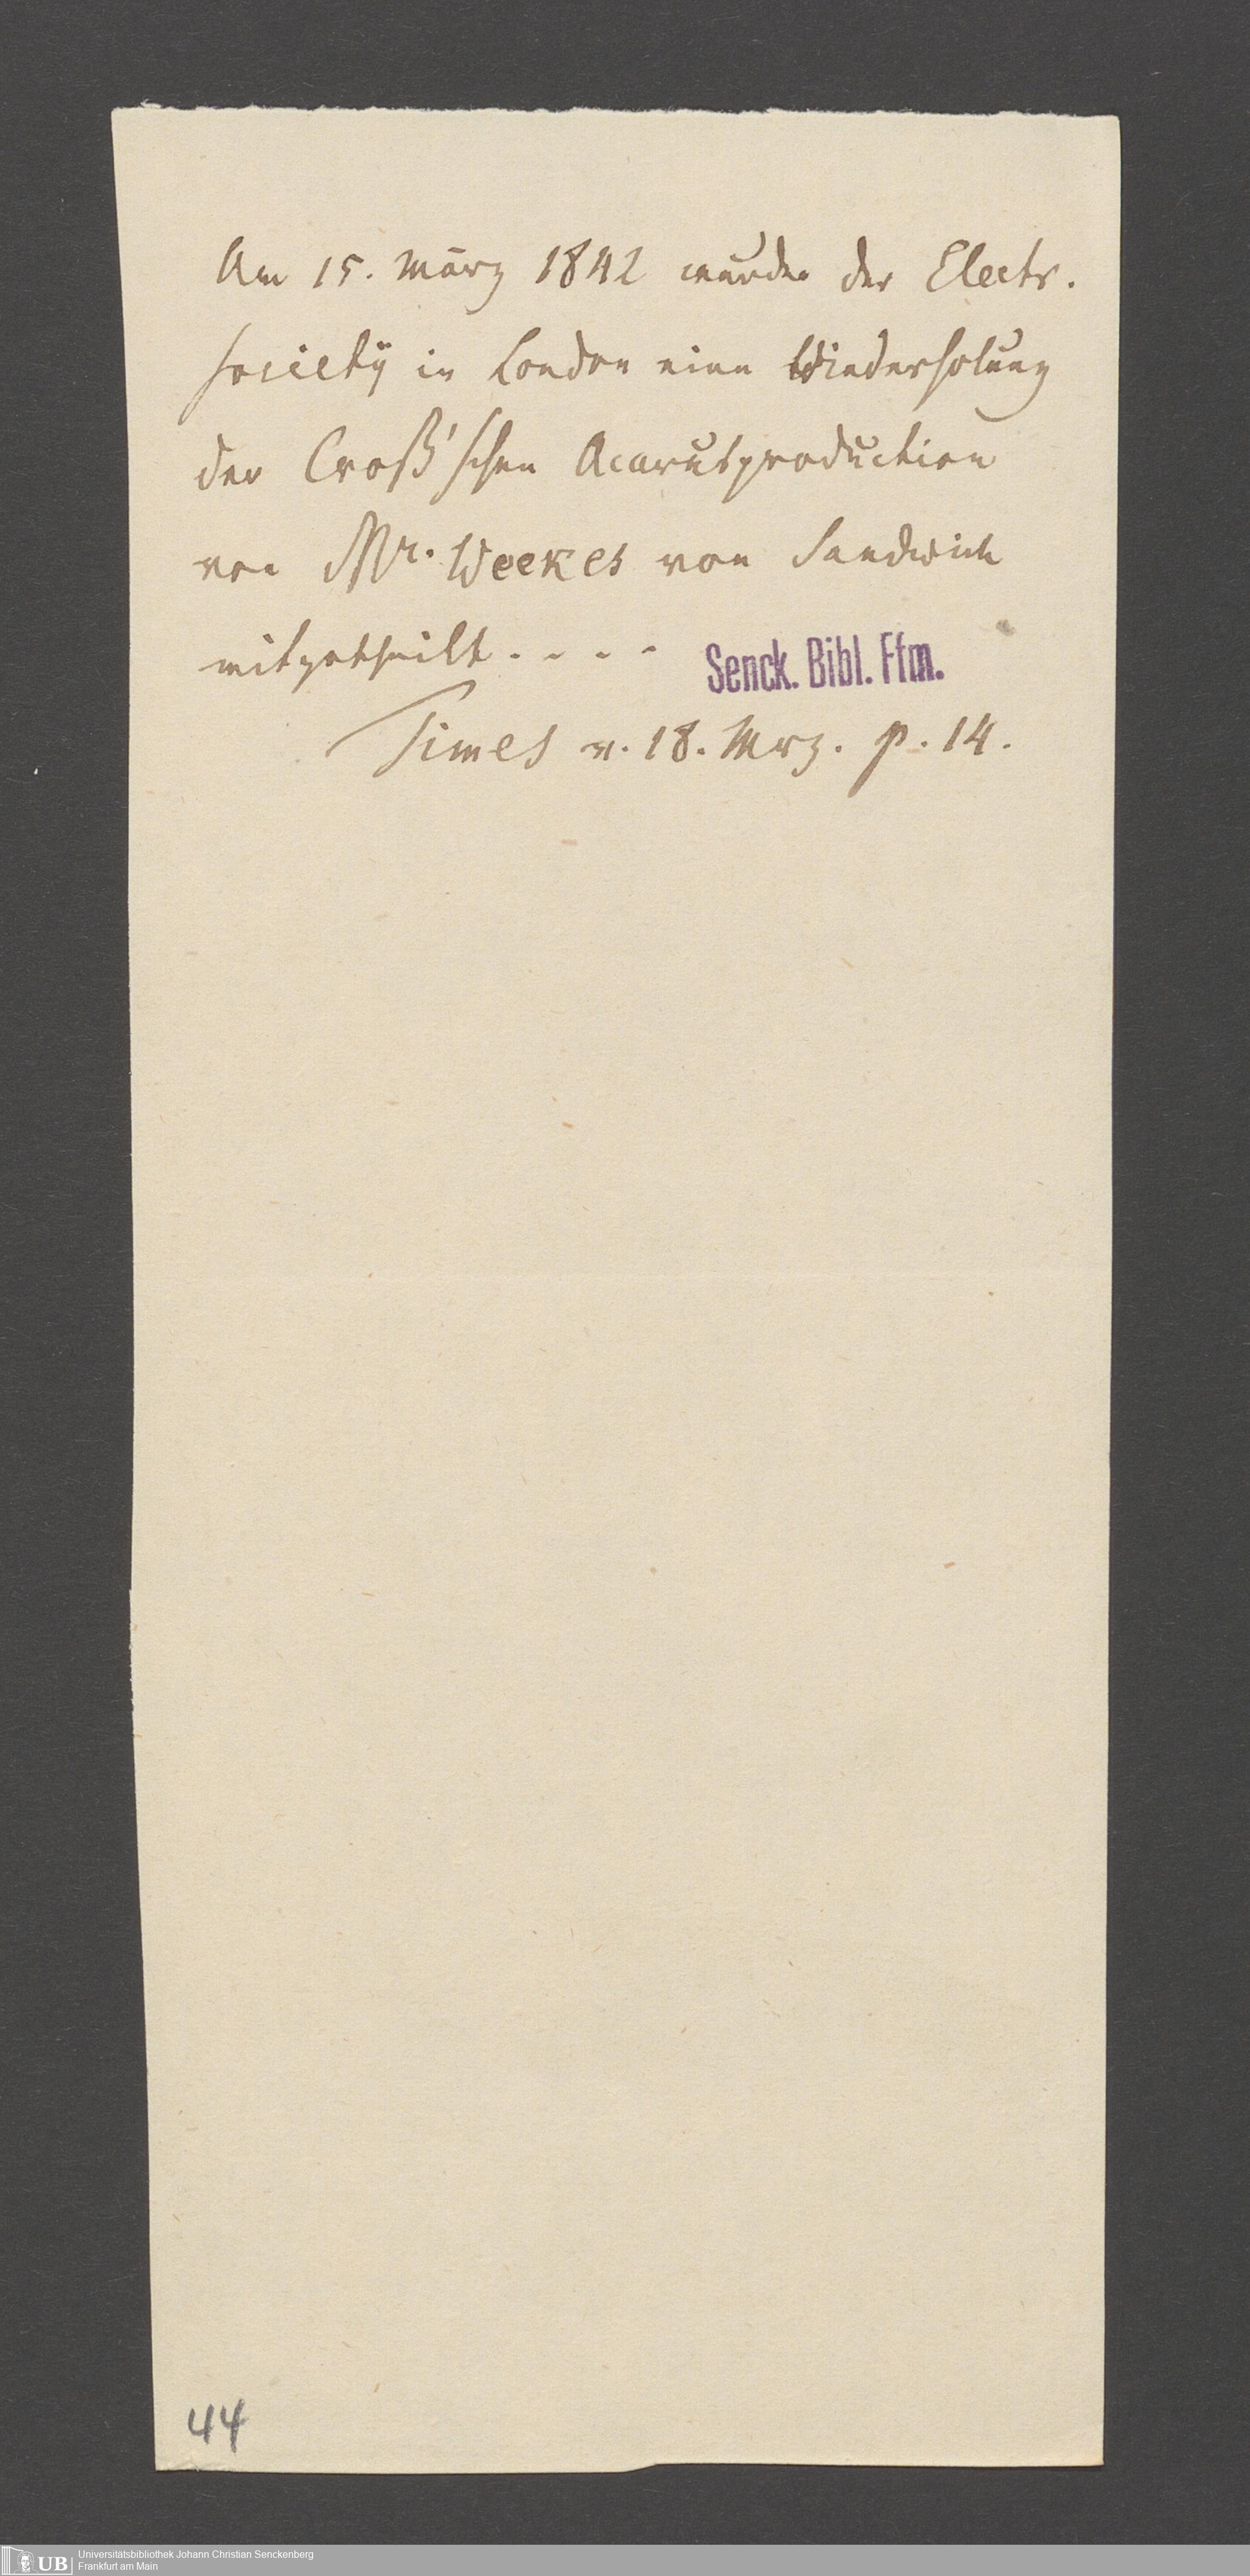 Am 15. März 1842 wurde der Electr.
Society in London eine Wiederholung
der Croß'schen Acarusproduction
von Mr. Weekes von Sandwich
mitgetheilt . . . .
Senck. Bibl. Ffm.
Times v. 18. Mrz. p. 14.
44
UB Universitätsbibliothek Johann Christian Senckenberg
Frankfurt am Main